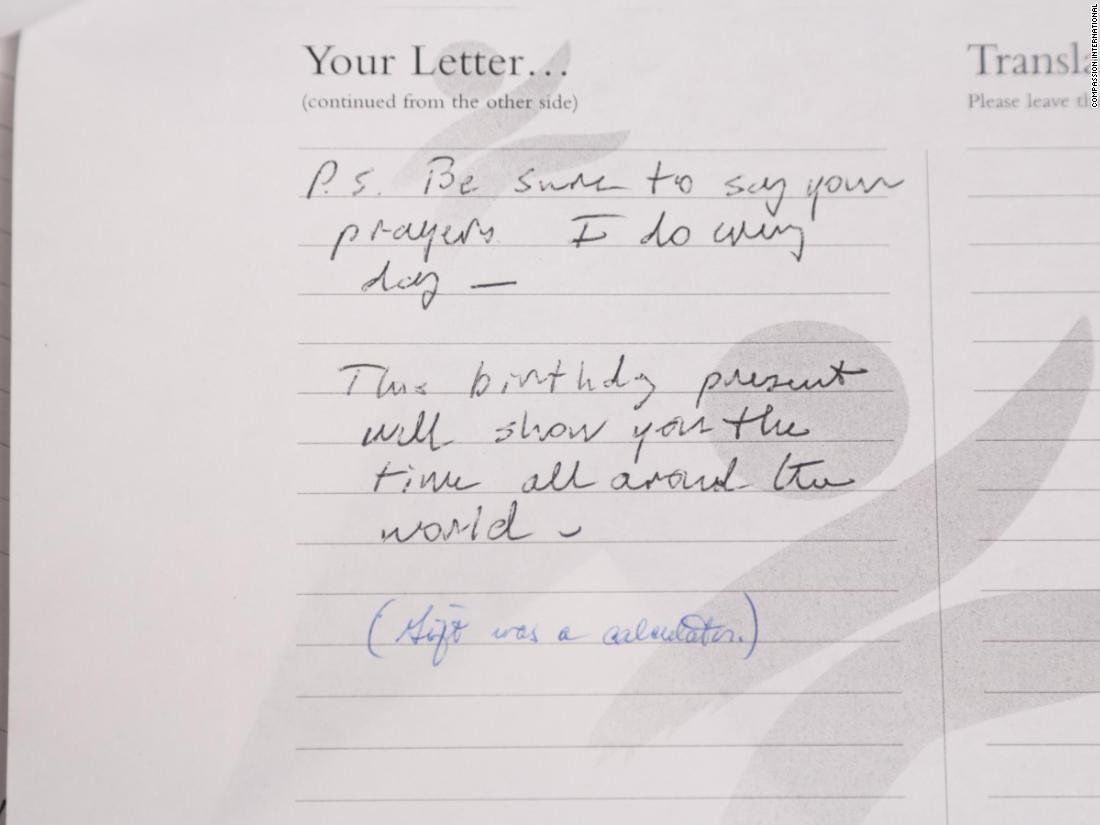 Your Letter…
(continued from the other side)
P.S. Be sure to say your
prayers I do every
day —
This birthday present
will show you the
time all around the
world -
(Gift was a calculator.)
Transla
Please leave th
COMPASSION INTERNATIONAL